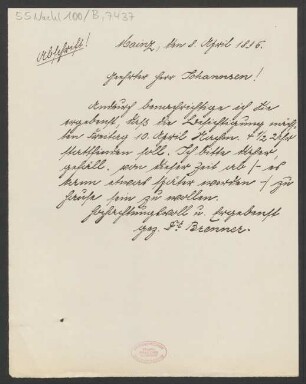 55 Nachl 100/B, 7437
Abschrift!
Mainz, den 8. April 1885.
Geehrter Herr Thomsen!
Andurch benachrichtige ich Sie
ergebenst, daß die Besichtigung näch-
sten Freitag 10. April 4 1/2 Uhr
stattfinden soll. Ich bitte daher,
gefäll. von dieser Zeit ab /- es
kann etwas später werden -/ zu
Hause sein zu wollen.
Hochachtungsvoll u. Ergebenst
gez. Fr. Brenner.